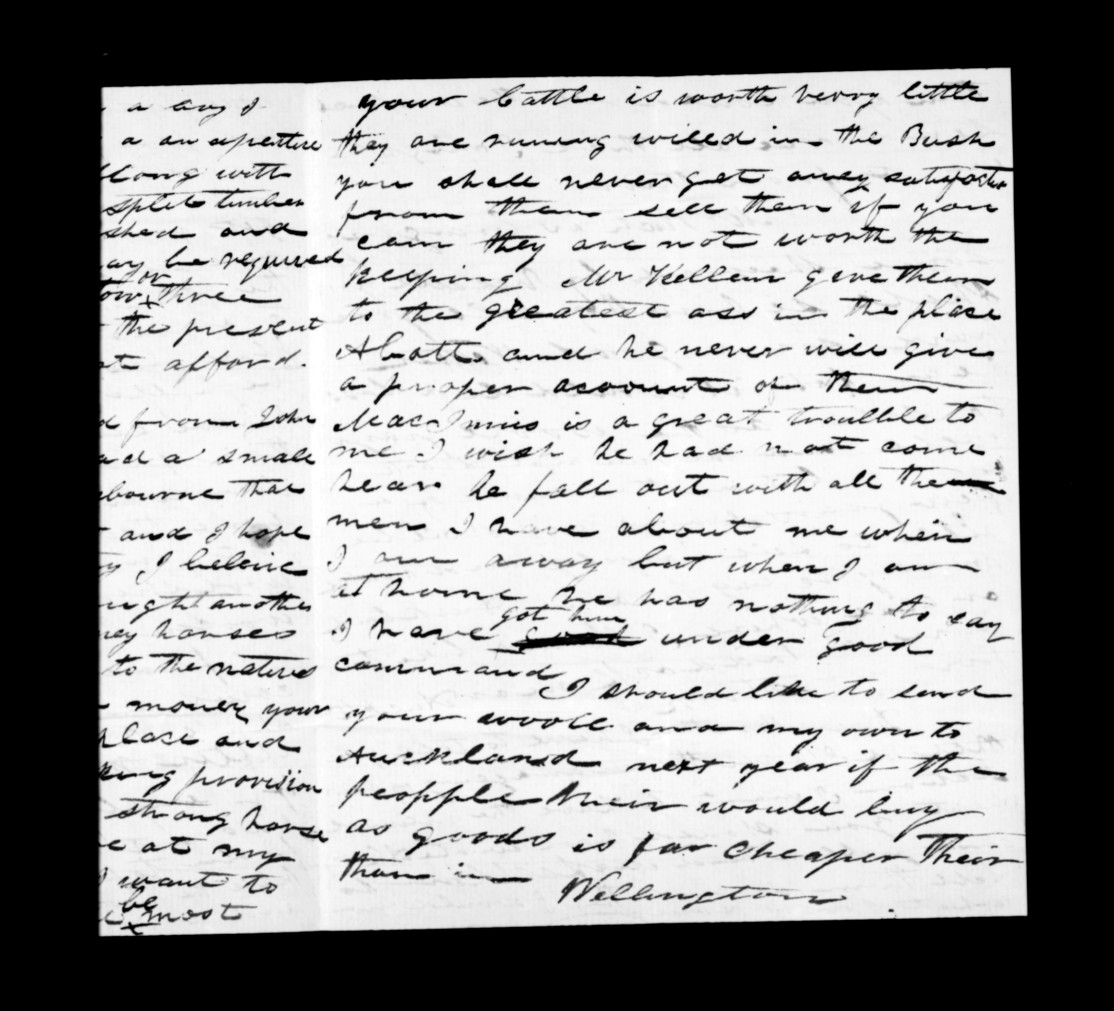 a any I
a an apertire
llong with
split timber
shed and
ay be requiered
for
three
the present
afford.
from John
ad a small
bourne that
and I hope
I beleive
ught another
ney horses
to the natives
money your
place and
king provision
strong horse
at my
I want to
be
most
your Cattle is worth verry little
they are runing willed in the Bush
you shall never get away satisfactr
from them sell them if you
can they are not worth the
keeping Mr Kellem give them
to the greatest ass in the place
Abott and he never will give
a proper account of them
MacInnis is a great troulble to
me I wish he had not come
hear he fall out with all the
men I have about me when
I am away but when I am
at home he has nothing to say
got him
I have under good
command
I should like to send
your wooll and my own to
Auckland next year if the
peopple their would buy
as goods is far cheaper their
than in
Wellington